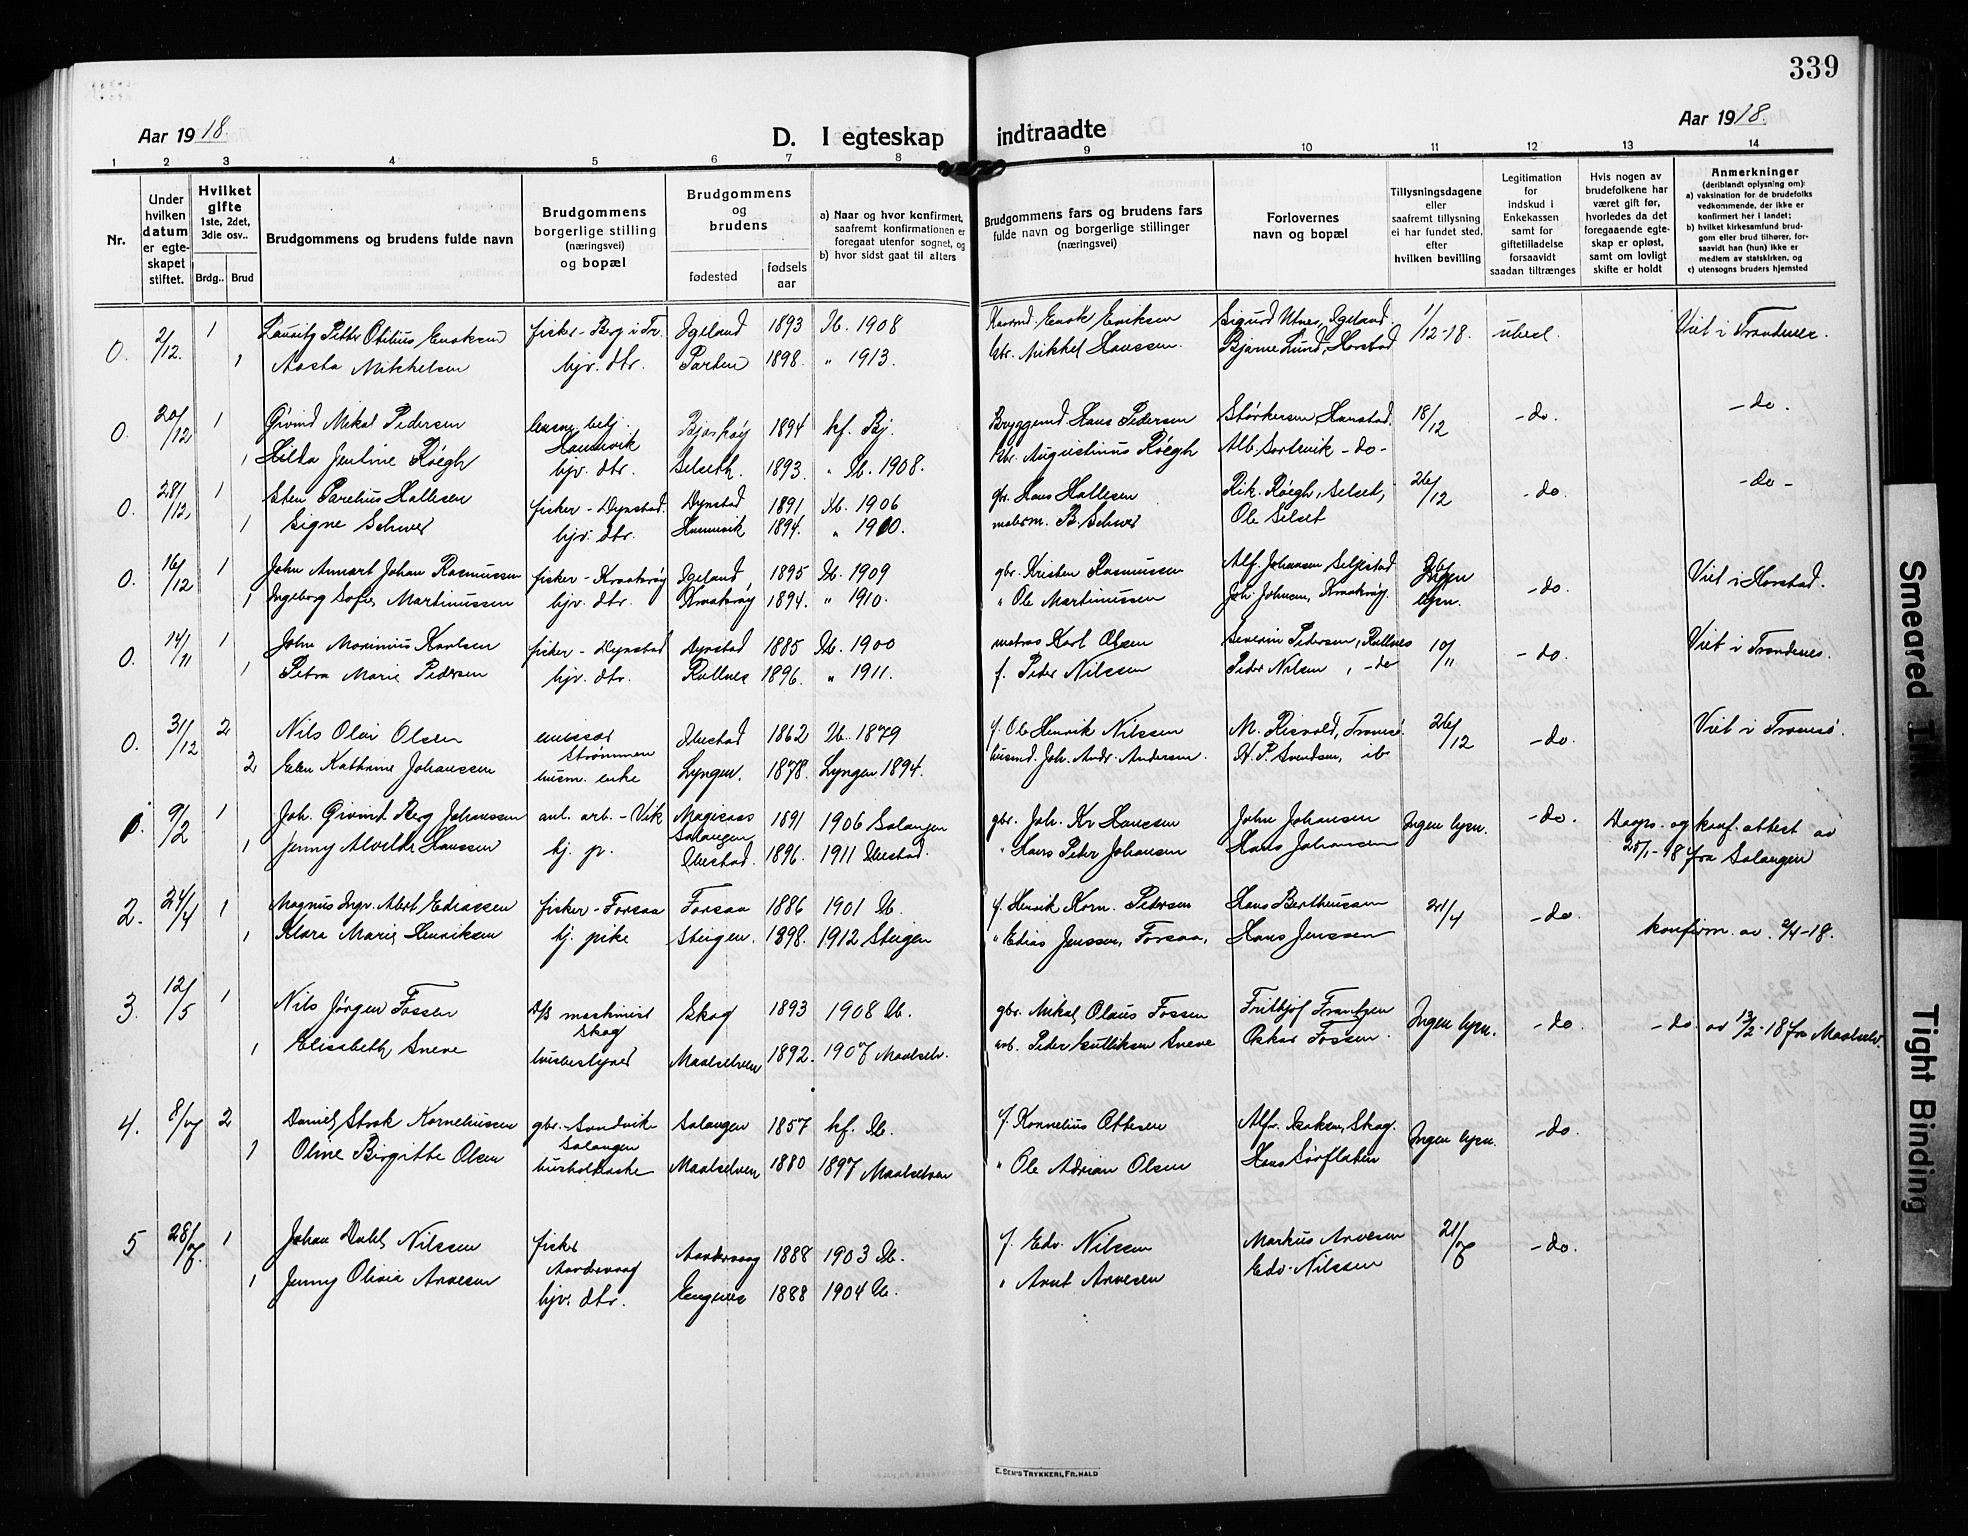 339
Aar 1918.
D. I egteskap indtraadte
Aar 1918.
1 2 3 4 5 6 7 8 9 10 11 12 13 14
Nr.
Under hvilken datum er egte- skapet stiftet.
Hvilket gifte 1ste, 2det, 3die osv..
Brdg.. Brud
Brudgommens og brudens fulde navn
Brudgommens borgerlige stilling (næringsvei) og bopæl
Brudgommens og brudens
fødested
fødsels aar
a) Naar og hvor konfirmert, saafremt konfirmationen er foregaat utenfor sognet, og
b) hvor sidst gaat til alters
Brudgommens fars og brudens fars fulde navn og borgerlige stillinger (næringsvei)
Forlovernes navn og bopæl
Tillysningsdagene eller saafremt tillysning ei har fundet sted, efter hvilken bevilling
Legitimation for indskud i Enkekassen samt for giftetilladelse forsaavidt saadan tiltrænges
Hvis nogen av brudefolkene har været gift før, hvorledes da det foregaaende egte- skap er opløst, samt om lovligt skifte er holdt
Anmerkninger
(deriblandt oplysning om):
a) vaksination for de brudefolks vedkommende, der ikke er konfirmert her i landet;
b) hvilket kirkesamfund brud- gom eller brud tilhører, for- saavidt han (hun) ikke er medlem av statskirken, og
c) utensogns bruders hjemsted
0. 2/12. 1 Lauritz Petter Otelius Enoksen fisker - Berg i Tr. Igeland 1893 Ib. 1908 Enok Eriksen Sigurd Utnes, Igeland 1/12-18. ubest. Viet i Trondenes.
1 Aasta Mikkelsen hjv. dtr. 1898. " 1913. gbr. Mikkel Hanssen. Bjarne Lund, Harstad
0. 20/12 1 Øivind Mikal Pedersen Hamnvik Bjarkøy 1894 kf. Bj. Hans Pedersen Størkersen Harstad. 18/12 - do. - do.
1 Hilda Jentine Røegh hjv. dtr. Selseth. 1893. " Ib. 1908. gbr. Augustinus Røegh Alb. Sortevik - do -
0. 28/12, 1 Sten Parelius Hallesen fisker - Dyrstad. Dyrstad 1891 Ib. 1906 gbr. Hans Hallesen Rik. Røegh, Selset, 26/12 - do. - do -
1 Signe Schwer hjv. dtr. Hamnvik 1894. " 1910. B. Schwer Ole Selset
0. 16/12 1 John Annart Johan Rasmussen fisker - Kraakrøy Igeland 1895 Ib. 1909 gbr. Kristen Rasmussen Alf. Johansen Seljestad Ingen lysn. - do. Viet i Harstad.
1 Ingeborg Sofie Martinussen hjv. dtr. Kraakrøy 1894. " 1910. " Ole Martinussen Joh. Johnsen, Kraakrøy.
0. 14/11 1 John Marinius Karlsen fisker - Dyrstad Dyrstad 1885 Ib. 1900 matros Karl Olsen Severin Pedersen, Rollnes 10/11 - do. Viet i Trondenes.
1 Petra Marie Pedersen hjv. dtr. Rollnes 1896. " 1911. f. Peder Nilssen Peder Nilsen, - do
0. 31/12 2 Nils Olai Olsen emissær Strømmen Ibestad 1862 Ib. 1879 f. Ole Henrik Nilssen M. Risvold, Tromsø. 26/12 - do. Viet i Tromsø.
2 Elen Kathrine Johanssen husm. enke Lyngen. 1878. Lyngen 1894. husmd. Joh. Andr. Andersen. H. P. Svendsen, ib
1. 9/2 1 Joh. Øivind Berg Johanssen anl. arb. - Vik Salangen 1891 1906 Salangen gbr. Joh. Kr Hanssen John Johansen Ingen lysn. - do. Daaps. og konf. attest av
1 Jenny Alvilde Hanssen tj. p. Ibestad. 1896. 1911 Ibestad. " Hans Peder Johansen Hans Johansen 28/1-18 fra Salangen
2. 24/4 1 Magnus Ingv. Albert Ediassen fisker - Forsaa Forsaa 1886 1901 Ib. f. Henrik Korn. Pedersen Hans Bertheussen 21/4 - do. konfirm. av. 9/4-18.
1 Klara Marie Henriksen tj. pike Steigen. 1898. 1912 Steigen " Edias Jenssen, Forsaa, Hans Jenssen
3. 12/5 1 Nils Jørgen Fossen D/S maskinist Skog Skog 1893 1908 Ib. gbr. Mikal Olaus Fossen Fritjof Frantzen Ingen lysn. - do. - do. av 12/2-18 fra Maalselv.
1 Elisabeth Sneve husbestyrer Maalselven 1892. 1907 Maalselv. arb. Peder Gulliksen Sneve Oskar Fossen.
4. 8/7 2 Daniel Strak Korneliussen gbr. - Sandvik Salangen Salangen 1857 kf. Ib. f. Kornelius Ottesen Alfr. Isaksen, Skog. Ingen lysn. - do.
1 Oline Birgitte Olsen Maalselven 1880 1897 Maalselven " Ole Adrian Olsen Hans Sørflaten
5 28/7. 1 Johan Dahl Nilssen fisker Aandervaag Aandervaag 1888 1903 Ib. f. Edv. Nilssen Markus Arvesen 21/7 - do.
1 Jenny Olivia Arvesen hjv. dtr. Engenes 1888 1904 Ib. " Arnt Arvesen Edv. Nilssen
E. SEM'S TRYKKERI, FR. HALD
Smeared Ink
Tight Binding